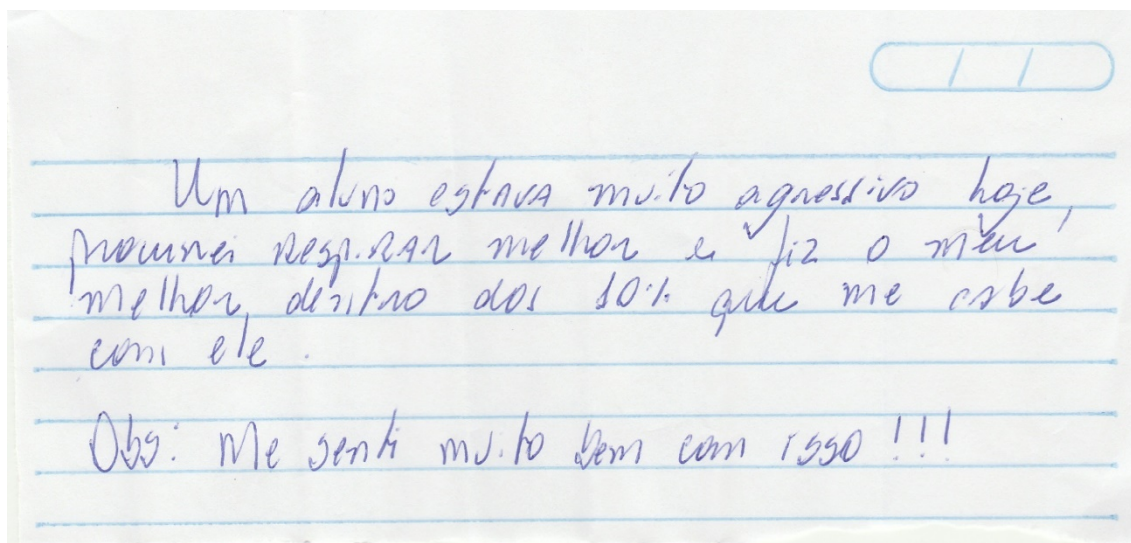 / /
Um aluno estava muito agressivo hoje,
procurei respirar melhor e fiz o meu
melhor, dentro dos 10% que me cabe
com ele.
Obs: Me senti muito bem com isso!!!